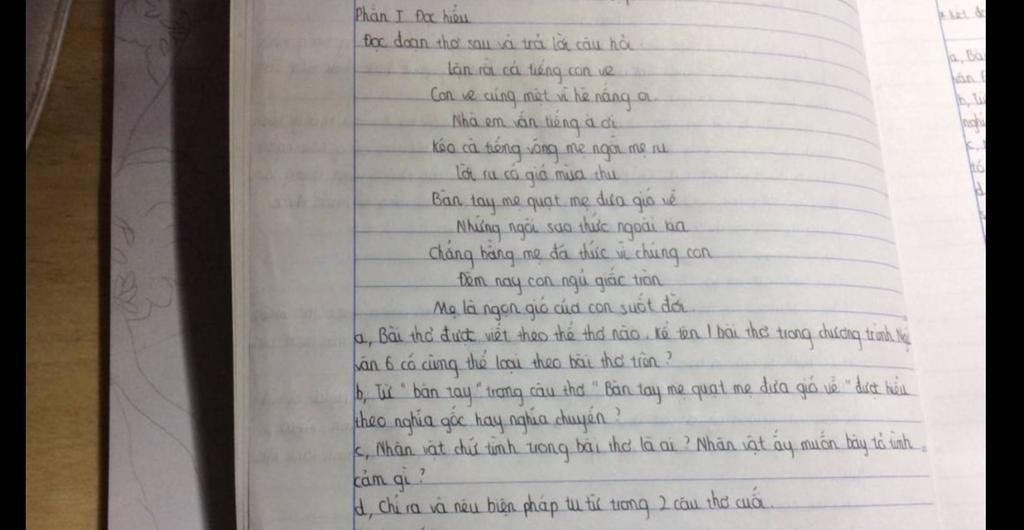 Phần I Đọc hiểu
Đọc đoạn thơ sau và trả lời câu hỏi.
Lặn rồi cả tiếng con ve
Con ve cũng mệt vì hè nắng oi.
Nhà em vẫn tiếng à ơi
Kẽo cà tiếng võng mẹ ngồi mẹ ru
Lời ru có gió mùa thu
Bàn tay mẹ quạt mẹ đưa gió về
Những ngôi sao thức ngoài kia
Chẳng bằng mẹ đã thức vì chúng con
Đêm nay con ngủ giấc tròn
Mẹ là ngọn gió của con suốt đời.
a, Bài thơ được viết theo thể thơ nào. Kể tên 1 bài thơ trong chương trình
văn 6 có cùng thể loại theo bài thơ trên?
b, Từ "bàn tay" trong câu thơ "Bàn tay mẹ quạt mẹ đưa gió về" được hiểu
theo nghĩa gốc hay nghĩa chuyển?
c, Nhân vật chữ tình trong bài thơ là ai? Nhân vật ấy muốn bày tỏ tình
cảm gì?
d, Chỉ ra và nêu biện pháp tu từ trong 2 câu thơ cuối.